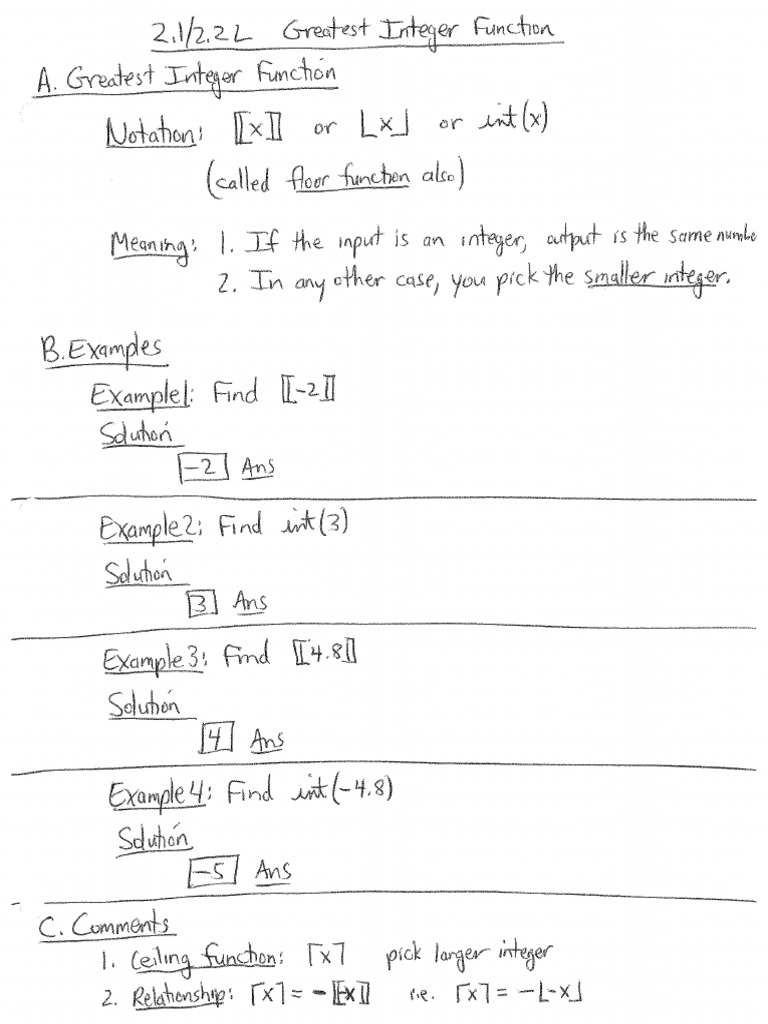 2.1/2.2L Greatest Integer Function
A. Greatest Integer Function
Notation: ⟦x⟧ or ⌊x⌋ or int(x)
(called floor function also)
Meaning: 1. If the input is an integer, output is the same numbe
2. In any other case, you pick the smaller integer.
B. Examples
Example 1: Find ⟦-2⟧
Solution
-2 Ans
Example 2: Find int(3)
Solution
3 Ans
Example 3: Find ⟦4.8⟧
Solution
4 Ans
Example 4: Find int(-4.8)
Solution
-5 Ans
C. Comments
1. Ceiling function: ⌈x⌉ pick larger integer
2. Relationship: ⌈x⌉ = -⟦-x⟧ i.e. ⌈x⌉ = -⌊-x⌋